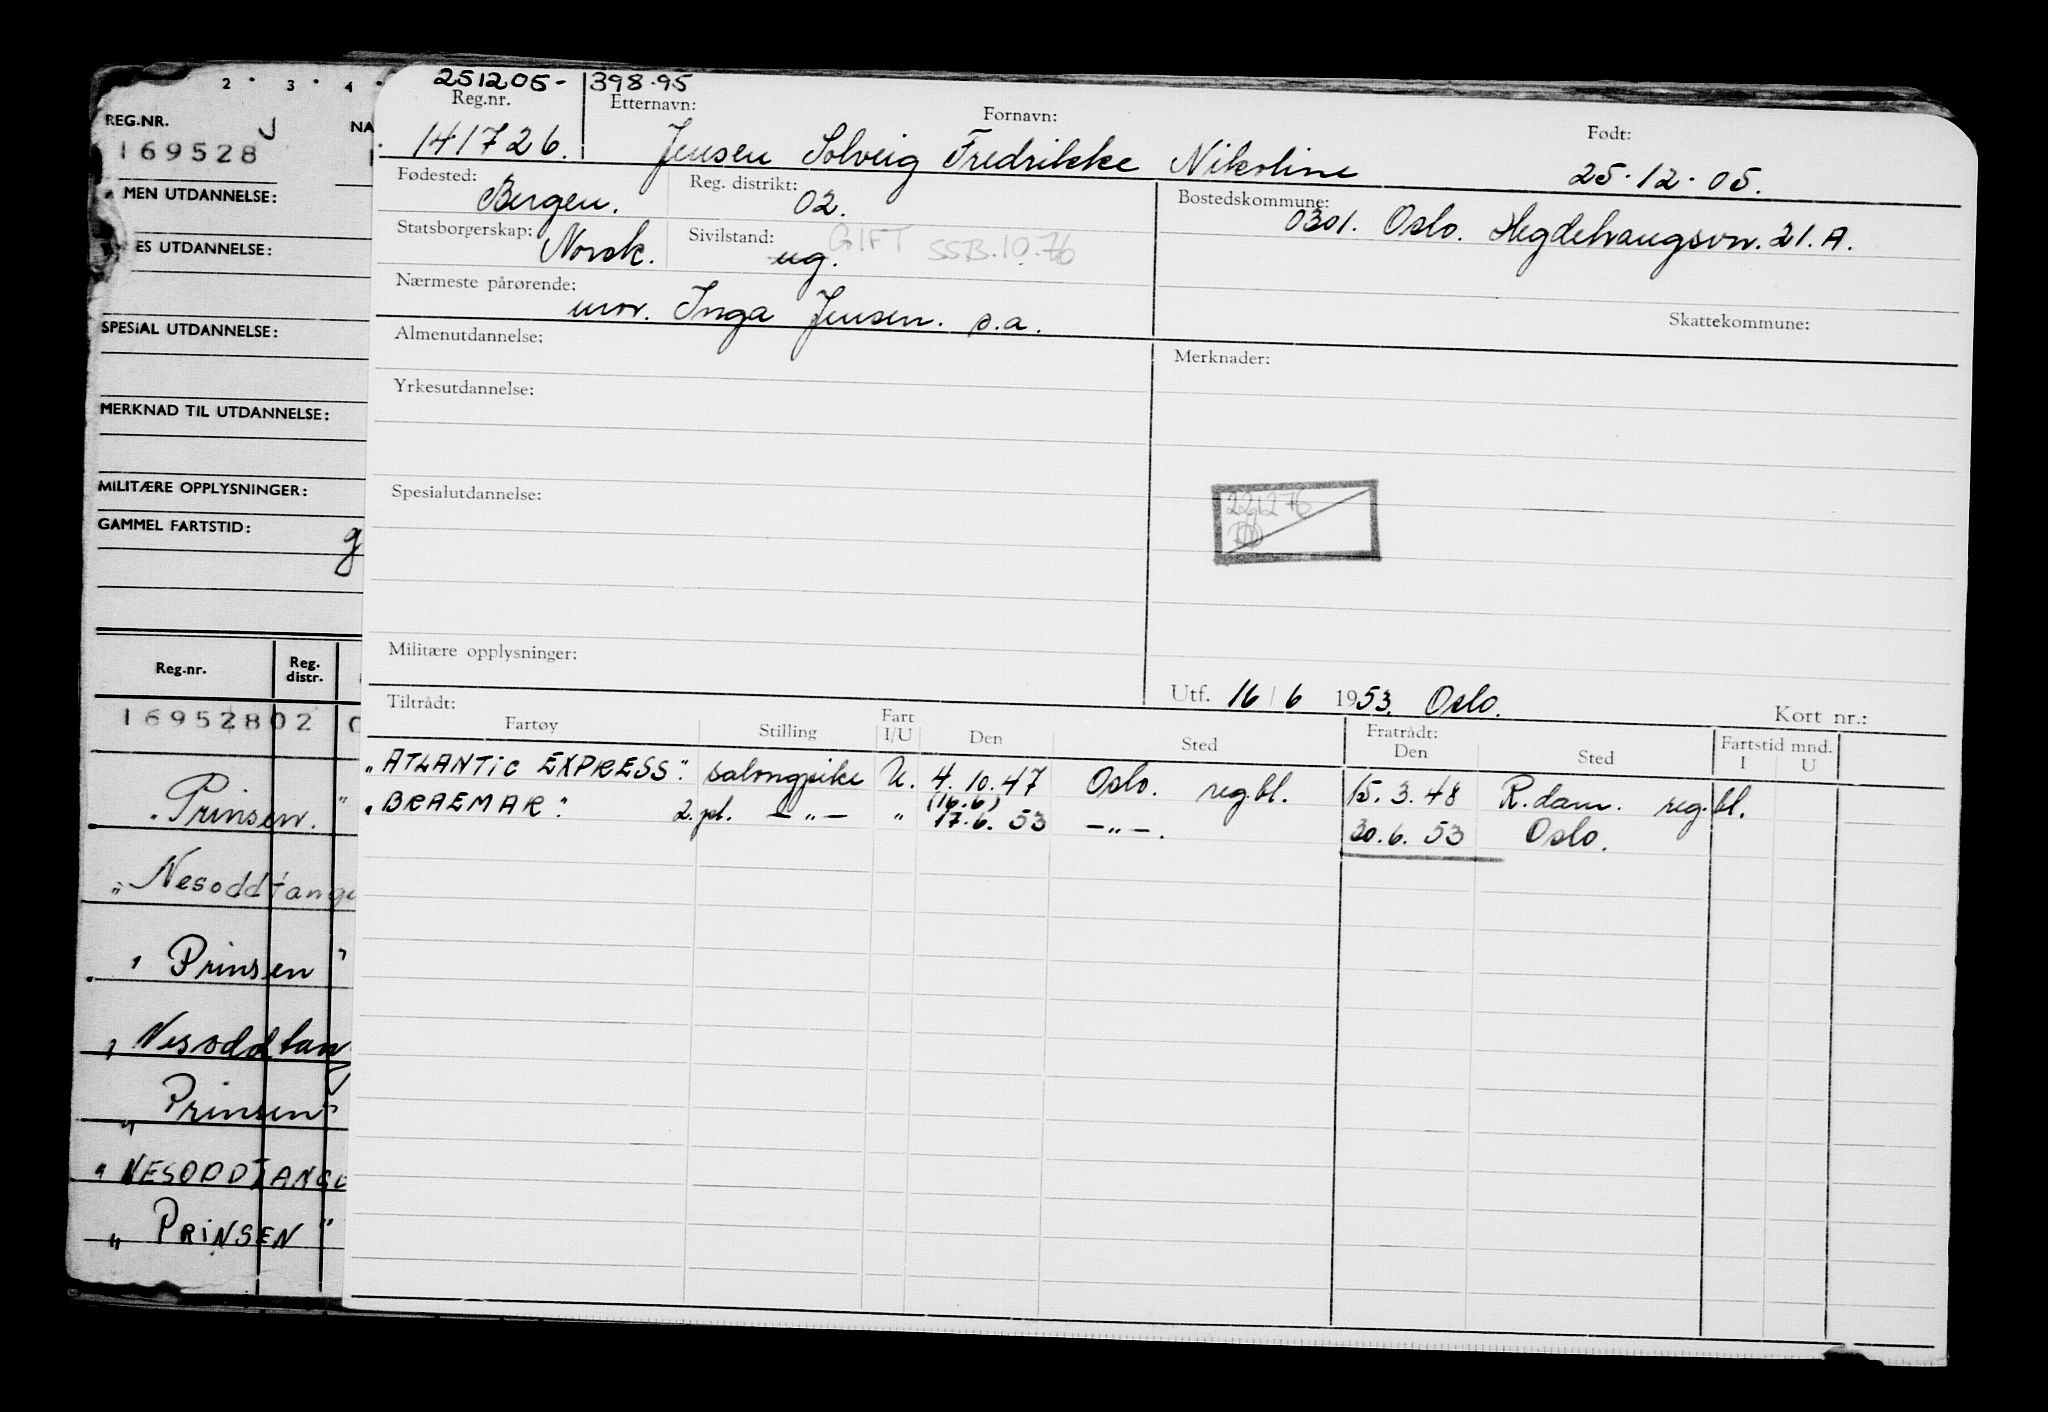 2 · 3 · 4 ·
REG.NR. J NA
169528
MEN UTDANNELSE:
ES UTDANNELSE:
SPESIAL UTDANNELSE:
MERKNAD TIL UTDANNELSE:
MILITÆRE OPPLYSNINGER:
GAMMEL FARTSTID: g
Reg.nr. Reg. distr.
169528 02
"Prinsen"
"Nesoddtange
"Prinsen"
"Nesoddtang
"Prinsen"
"NESODDTANGE
"PRINSEN"
251205- 398.95
Reg.nr. Etternavn: Fornavn: Født:
141726. Jensen Solveig Fredrikke Nikoline 25.12.05.
Fødested: Bergen. Reg. distrikt: 02. Bostedskommune: 0301. Oslo. Hegdehaugsvn. 21. A.
Statsborgerskap: Norsk. Sivilstand: ug. GIFT SSB.10.76
Nærmeste pårørende: mor. Inga Jensen. s.a.
Skattekommune:
Almenutdannelse: Merknader:
Yrkesutdannelse:
Spesialutdannelse: 221276
Militære opplysninger:
Utf. 16/6 1953. Oslo. Kort nr.:
Tiltrådt: Fratrådt: Fartstid mnd.
Fartøy Stilling Fart I/U Den Sted Den Sted I U
"ATLANTIC EXPRESS". salongpike U. 4.10.47 Oslo. reg.bl. 15.3.48 R.dam. reg.bl.
(16.6)
"BRAEMAR". 2.pl. —"— " 17.6.53 —"—. 30.6.53 Oslo.